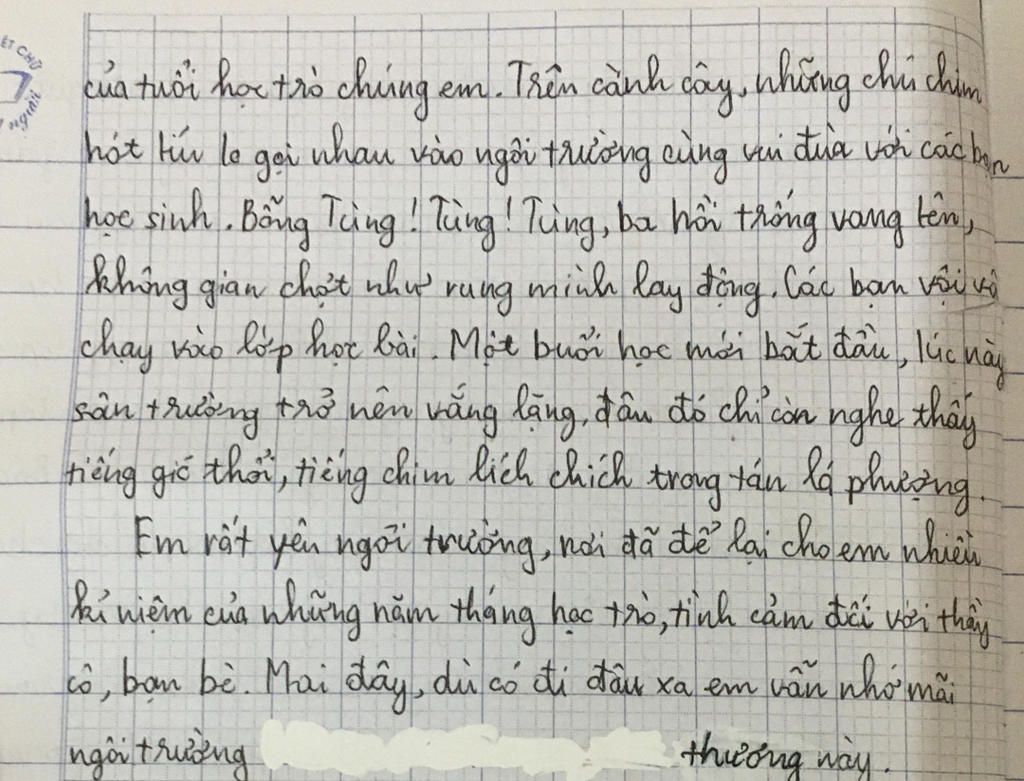 ẾT CHỮ
người
của tuổi học trò chúng em. Trên cành cây, những chú chim
hót líu lo gọi nhau vào ngôi trường cùng vui đùa với các bạn
học sinh. Bỗng Tùng! Tùng! Tùng, ba hồi trống vang lên,
không gian chợt như rung mình lay động. Các bạn vội vã
chạy vào lớp học bài. Một buổi học mới bắt đầu, lúc này
sân trường trở nên vắng lặng, đâu đó chỉ còn nghe thấy
tiếng gió thổi, tiếng chim lích chích trong tán lá phượng.
Em rất yêu ngôi trường, nơi đã để lại cho em nhiều
kỉ niệm của những năm tháng học trò, tình cảm đối với thầy
cô, bạn bè. Mai đây, dù có đi đâu xa em vẫn nhớ mãi
ngôi trường thương này.